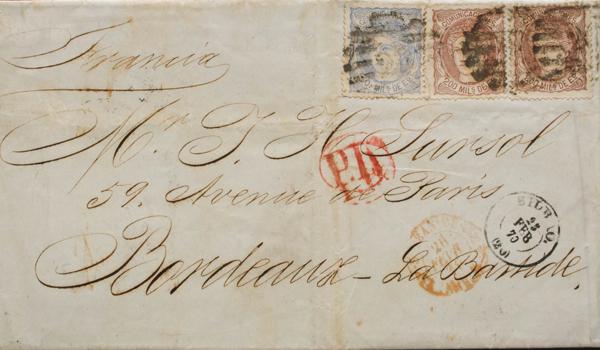 Francia
COMUNICACIONES
200 MILS DE ES
200 MILS DE ES
Mr J H Sursol
P.D.
59, Avenue de Paris
BILBAO.
23
FEB
70
(20)
Bordeaux - La Bastide,